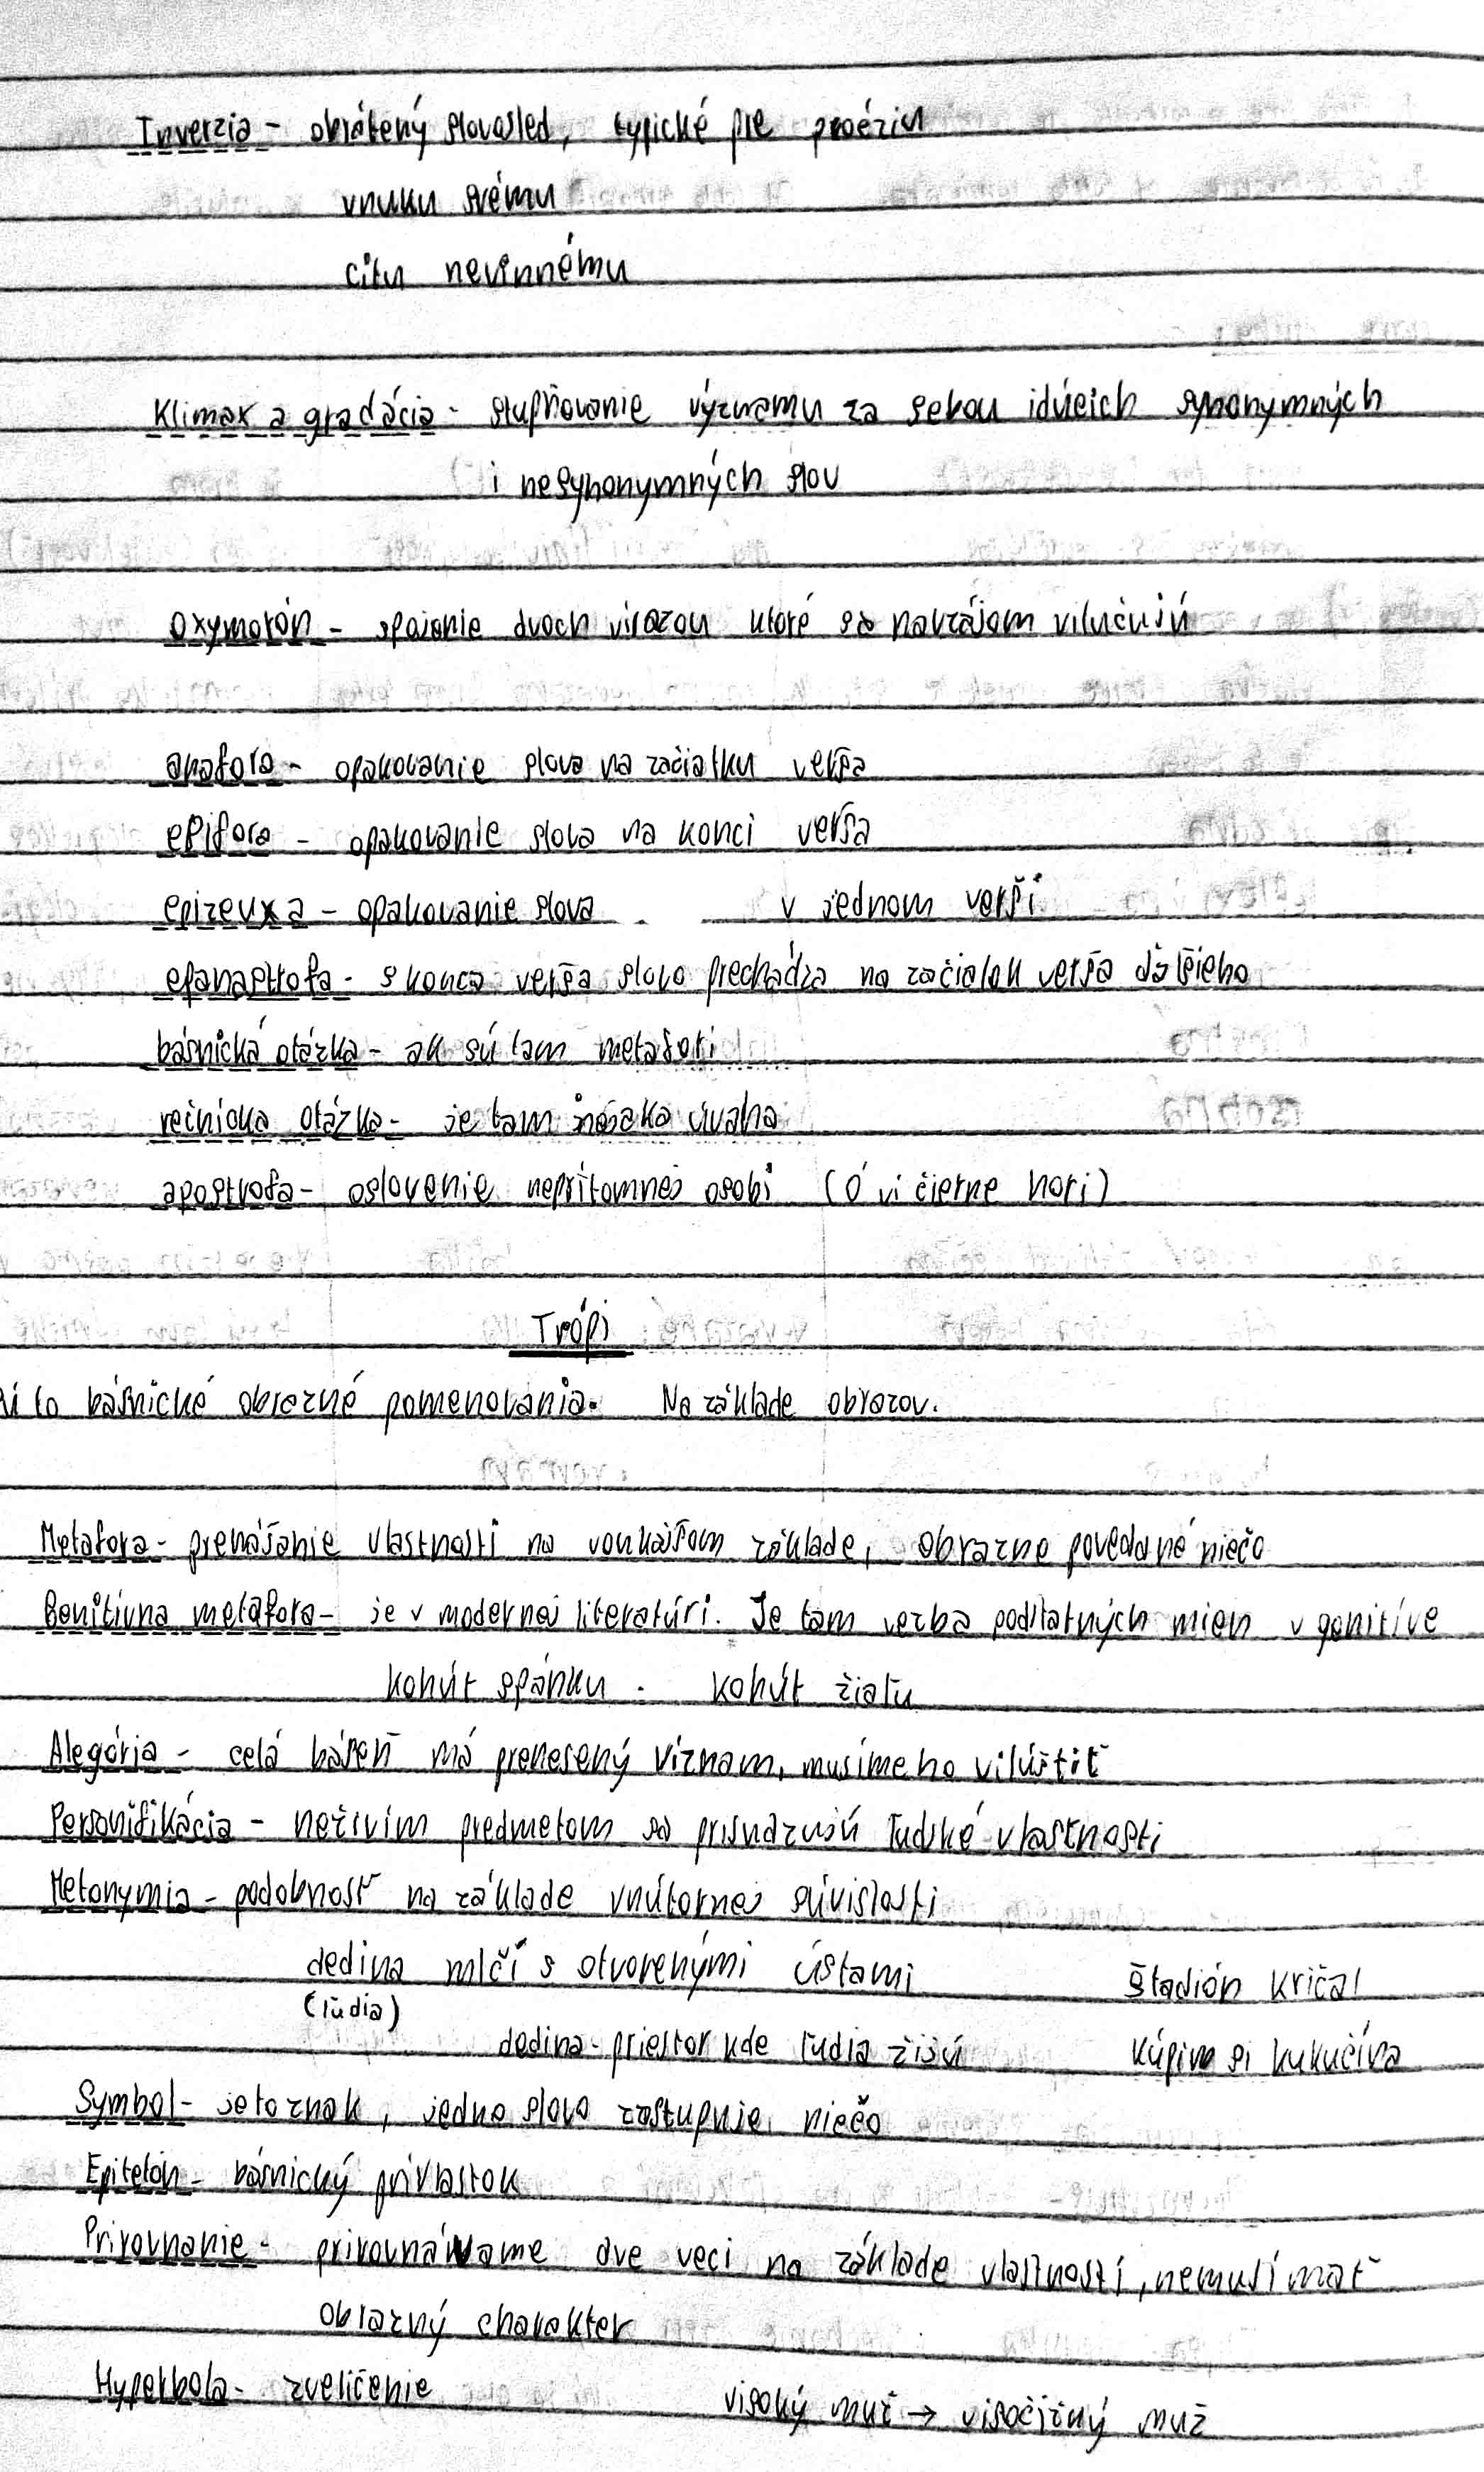 Inverzia - obrátený slovosled, typické pre poéziu
vnuku svému
citu nevinnému
Klimax a gradácia - stupňovanie významu za sebou idúcich synonymných
i nesynonymných slov
Oxymorón - spojenie dvoch virazou ktoré sa navzájom vilučujú
anafora - opakovanie slova na začiatku verša
epifora - opakovanie slova na konci verša
epizeuxa - opakovanie slova v jednom verši
epanastrofa - s konca verša slovo prechádza na začiatok verša ďalšieho
básnická otázka - ak sú tam metafori
rečnícka otázka - je tam úvaha
apostrofa - oslovenie neprítomnej osobi (Ó vi čierne hori)
Trópi
to básnické obrazné pomenovania. Na základe obrazov.
Metafora - prenášanie vlastností na vonkajšom základe, obrazne povedané niečo
Genitívna metafora - je v modernej literatúri. Je tam vezba podstatných mien v genitíve
kohút spánku. kohút žiaľu
Alegória - celá báseň má prenesený víznam, musíme ho vilúštiť
Personifikácia - neživím predmetom sa prisudzujú ľudské vlastnosti
Metonymia - podobnosť na základe vnútornej súvislosti
dedina mlčí s otvorenými ústami Štadión kričal
(ľudia)
dedina - priestor kde ľudia žijú Kúpim si kukučína
Symbol - je to znak, jedno slovo zastupuje niečo
Epitetón - básnický prívlastok
Prirovnanie - prirovnávame dve veci na základe vlastností, nemusí mať
obrazný charakter
Hyperbola - zveličenie visoký muž → visočizný muž